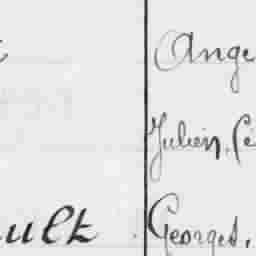 Ange
Julien, Cé
ult Georges,